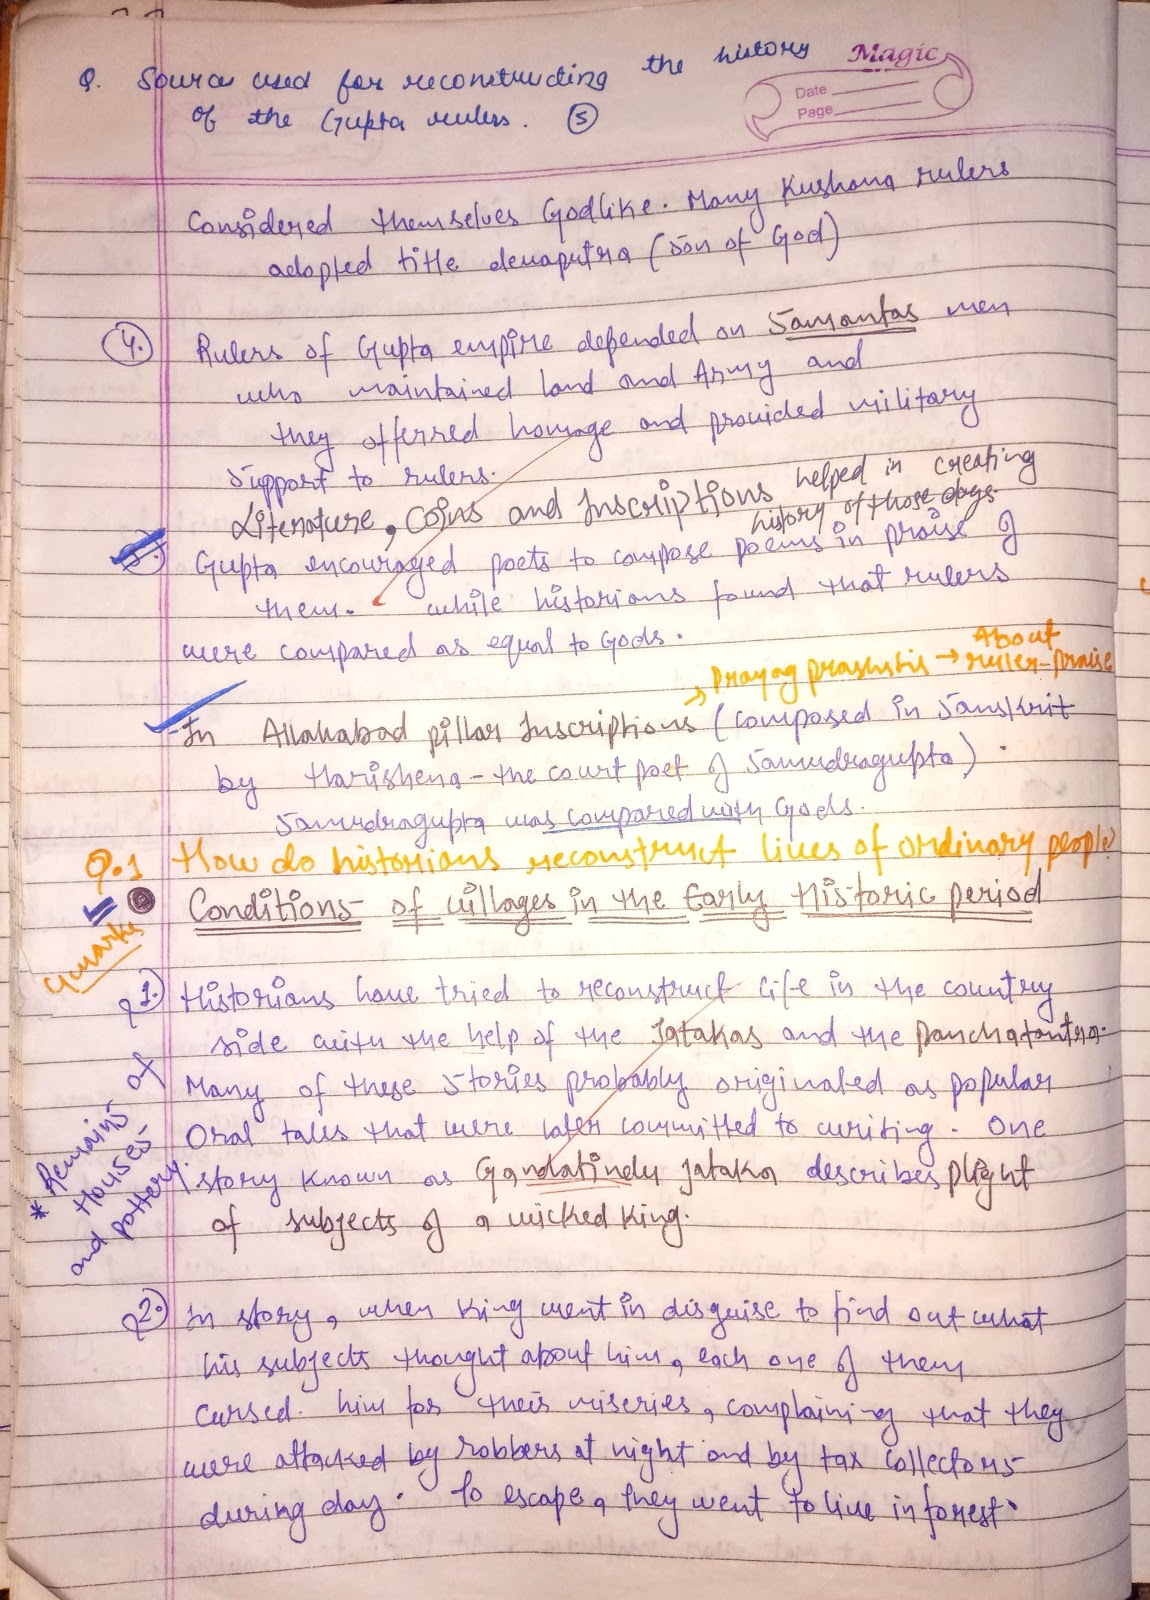 Q. Sources used for reconstructing the history
of the Gupta rulers. (5)
Magic
Date
Page
Considered themselves Godlike. Many Kushana rulers
adopted title devaputra (son of God)
4. Rulers of Gupta empire depended on Samantas men
who maintained land and Army and
they offerred homage and provided military
support to rulers.
Literature, Coins and Inscriptions helped in creating
history of those days.
5. Gupta encouraged poets to compose poems in praise of
them. while historians found that rulers
were compared as equal to Gods.
→ Prayag prashustis → About
ruler-praise
In Allahabad pillar Inscriptions (composed in Sanskrit
by Harishena - the court poet of Samudragupta).
Samudragupta was compared with Gods.
Q.1 How do historians reconstruct lives of ordinary people?
4 marks
Conditions of villages in the Early Historic period
1. Historians have tried to reconstruct life in the country
side with the help of the Jatakas and the Panchatantra.
Many of these stories probably originated as popular
Oral tales that were later committed to writing. One
story known as Gandatindu Jataka describes plight
of subjects of a wicked King.
* Remains of
Houses
and pottery.
2. In story, when King went in disguise to find out what
his subjects thought about him, each one of them
cursed him for their miseries, complaining that they
were attacked by robbers at night and by tax collectors
during day. To escape, they went to live in forest.